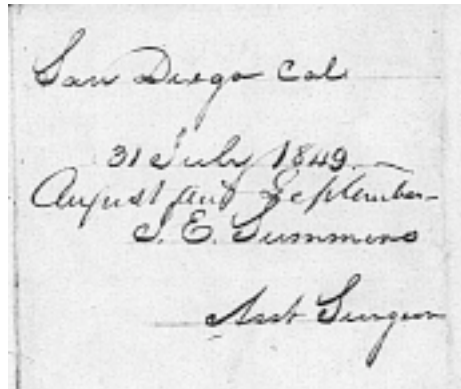 San Diego Cal
31 July 1849
August and September
S. E. Summers
Asst Surgeon